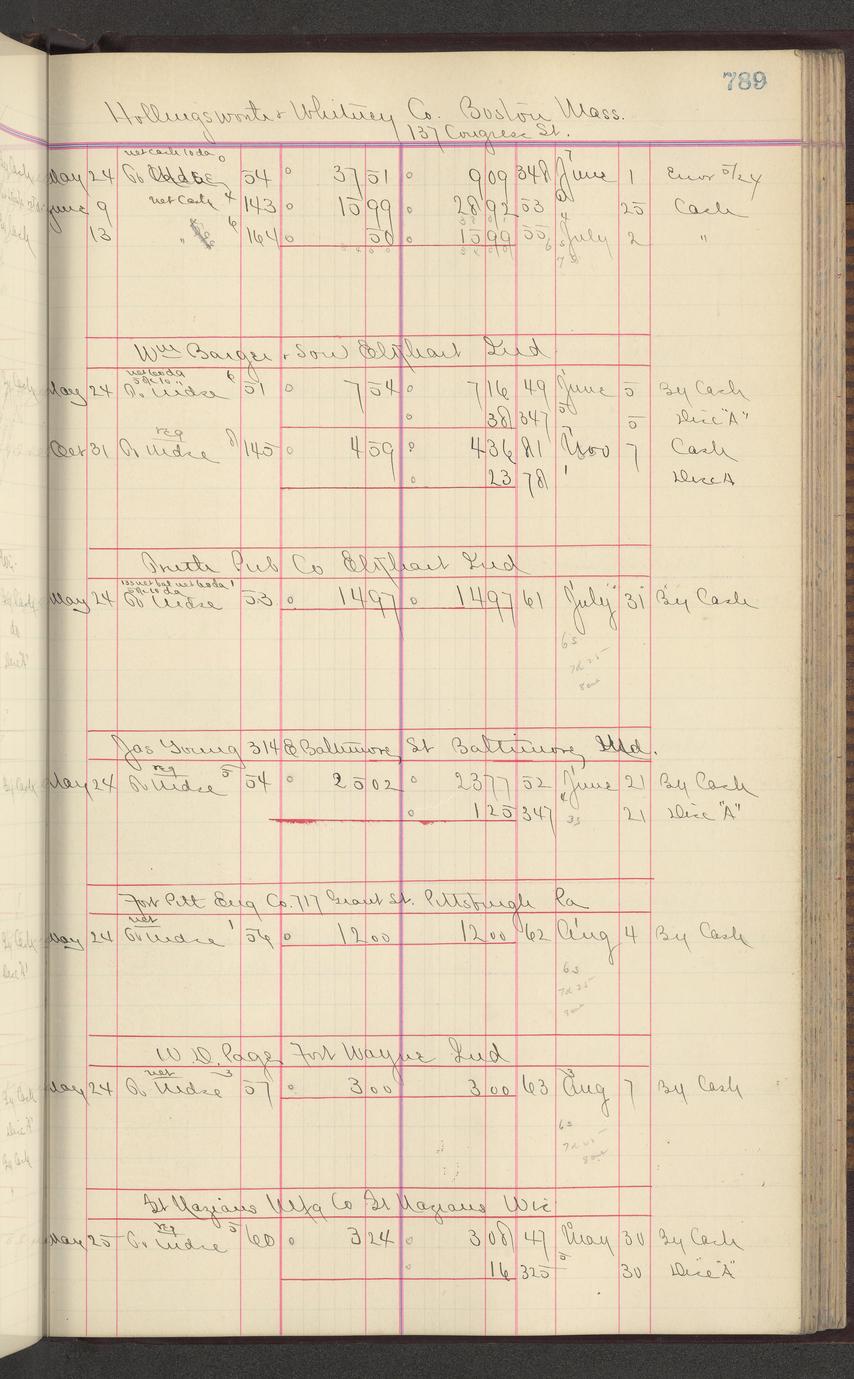 789
Hollingsworth & Whitney Co. Boston Mass.
137 Congress St.
net cash 10 da
May 24 To Mdse 54 37 51 9 09 348 June 1 Error 5/24
June 9 net Cash 4 143 15 99 28 92 53 25 Cash
13 " 6 164 50 15 99 55 July 2 "
Wm Barger & Son Elkhart Ind
May 24 To Mdse 6 51 7 54 7 16 49 June 5 By Cash
38 347 5 Disc "A"
reg
Oct 31 To Mdse 8 145 4 59 4 36 81 Nov 7 Cash
23 78 Disc A
Truth Pub Co Elkhart Ind
May 24 To Mdse 53 14 97 14 97 61 July 31 By Cash
Jas Young 314 E Baltimore St Baltimore, Md.
reg
May 24 To Mdse 5 54 25 02 23 77 52 June 21 By Cash
1 25 347 21 Disc "A"
Fort Pitt Eng Co. 717 Grant St. Pittsburgh Pa
net
May 24 To Mdse 1 56 12 00 12 00 62 Aug 4 By Cash
W. D. Page, Fort Wayne Ind
net
May 24 To Mdse 3 57 3 00 3 00 63 Aug 7 By Cash
St Nazians Mfg Co St Nazians Wis
reg
May 25 To Mdse 5 60 3 24 3 08 47 May 30 By Cash
16 325 30 Disc "A"